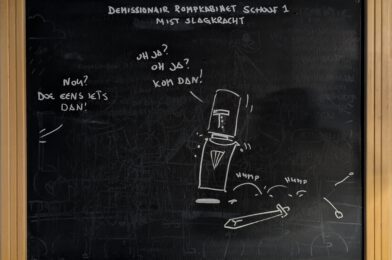 DEMISSIONAIR ROMPKABINET SCHOOF 1
MIST SLAGKRACHT
OH JA?
OH JA?
KOM DAN!
NOU?
DOE EENS IETS
DAN!
HUMP
HUMP